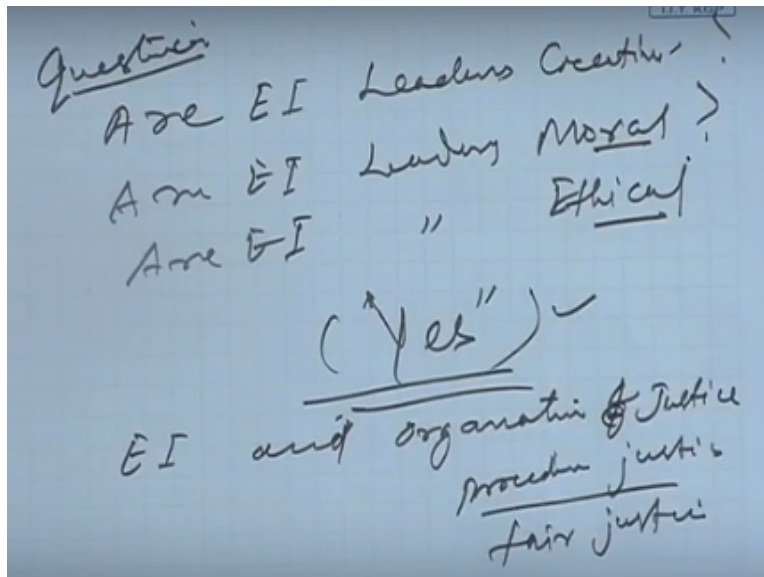 IIT KGP
Question
Are EI Leaders Creative ?
Are EI Leaders Moral ?
Are EI " Ethical
("Yes") ✓
EI and organization & Justice
procedure justice
fair justice